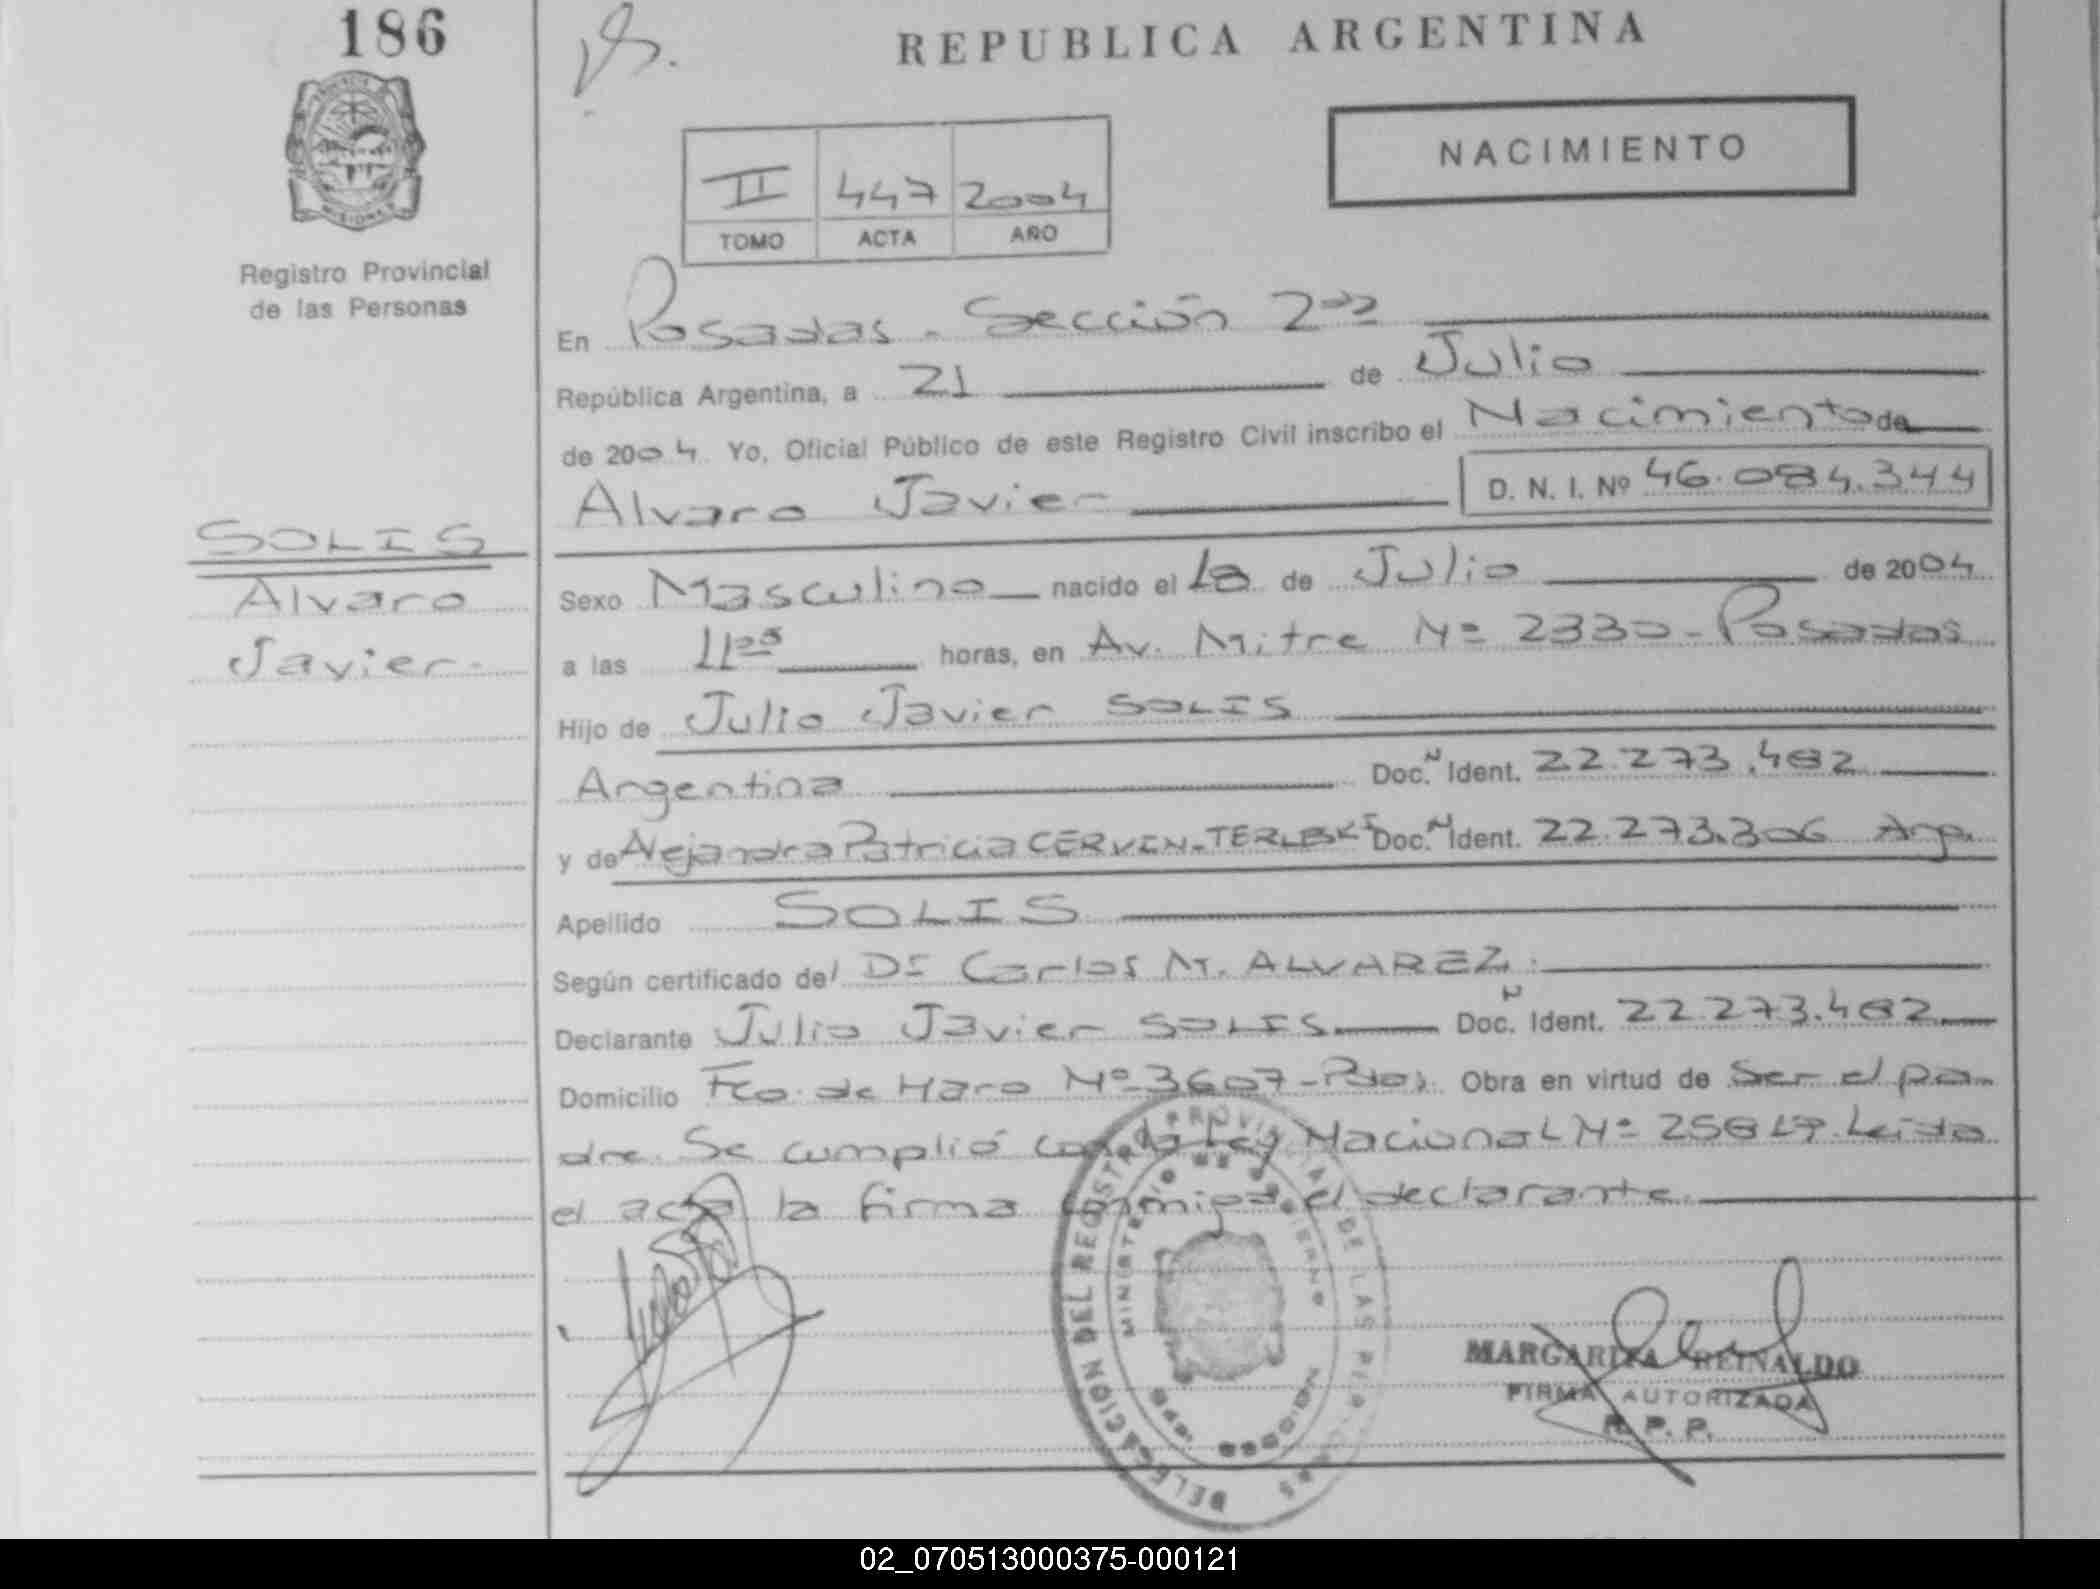 186
REPUBLICA ARGENTINA
NACIMIENTO
II 447 2004
TOMO ACTA AÑO
Registro Provincial
de las Personas
En Posadas - Sección 2da
República Argentina, a 21 de Julio
de 2004. Yo, Oficial Público de este Registro Civil inscribo el Nacimiento de
Alvaro Javier D. N. I. Nº 46.084.344
SOLIS
Alvaro
Javier
Sexo Masculino nacido el de Julio de 2004
a las horas, en Av. Mitre Nº 2330 - Posadas
Hijo de Julio Javier SOLIS
Argentina Doc. N Ident. 22.273.482
y de Alejandra Patricia CERVEN-TERLESKI Doc. N Ident. 22.273.306 Arg.
Apellido SOLIS
Según certificado del Dr Carlos M. ALVAREZ
Declarante Julio Javier SOLIS Doc. N Ident. 22.273.482
Domicilio Fco. de Haro Nº 3607 - Pdas. Obra en virtud de Ser el pa-
dre. Se cumplió con la Ley Nacional Nº Leida
el acta la firma conmigo el declarante.
DELEGACION DEL REGISTRO PROVINCIAL DE LAS PERSONAS
MINISTERIO DE GOBIERNO
MISIONES
MARGARITA REINALDO
FIRMA AUTORIZADA
R. P. P.
02_070513000375-000121